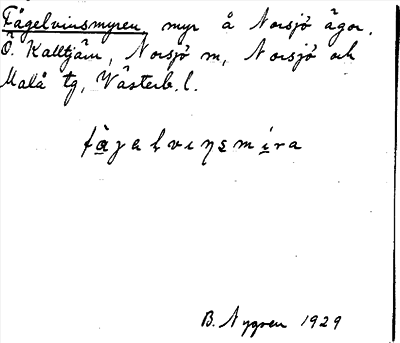 Fågelvinsmyren, myr å Norsjö ägor.
Ö. Kalltjärn, Norsjö sn, Norsjö och
Malå tg, Västerb. l.
fågelvinsmira
B. Nygren 1929